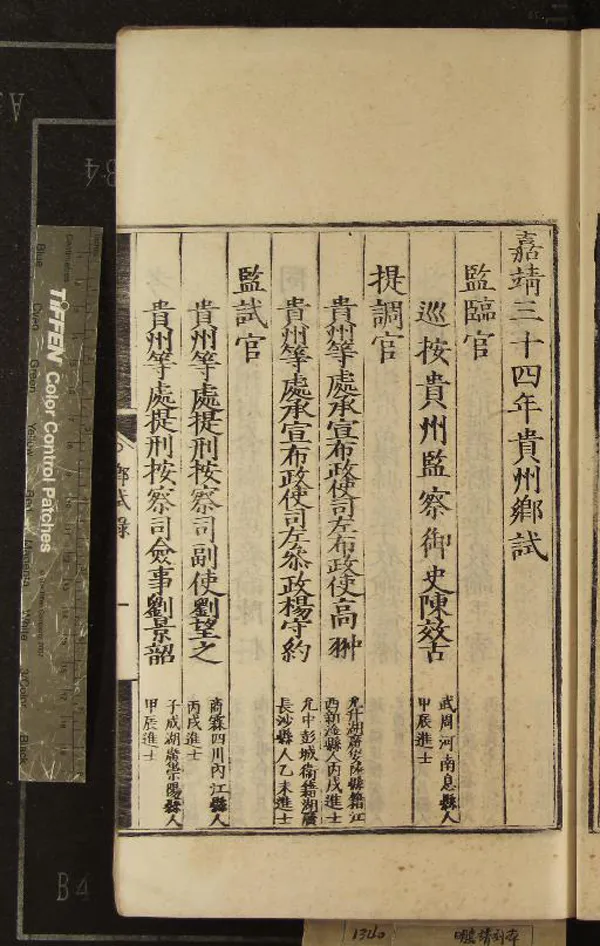 嘉靖三十四年貴州鄉試
監臨官
巡按貴州監察御史陳效古
武周河南息縣人
甲辰進士
提調官
貴州等處承宣布政使司左布政使高翀
允升湖廣安陸縣籍江
西新淦縣人丙戌進士
貴州等處承宣布政使司左叅政楊守約
允中彭城衛籍湖廣
長沙縣人乙未進士
監試官
貴州等處提刑按察司副使劉望之
商霖四川內江縣人
丙戌進士
貴州等處提刑按察司僉事劉景韶
子成湖廣崇陽縣人
甲辰進士
鄉試錄
一
TIFFEN Color Control Patches
Blue
Green
Yellow
Red
Magenta
White
3/Color
Black
B4
B4
A
1340